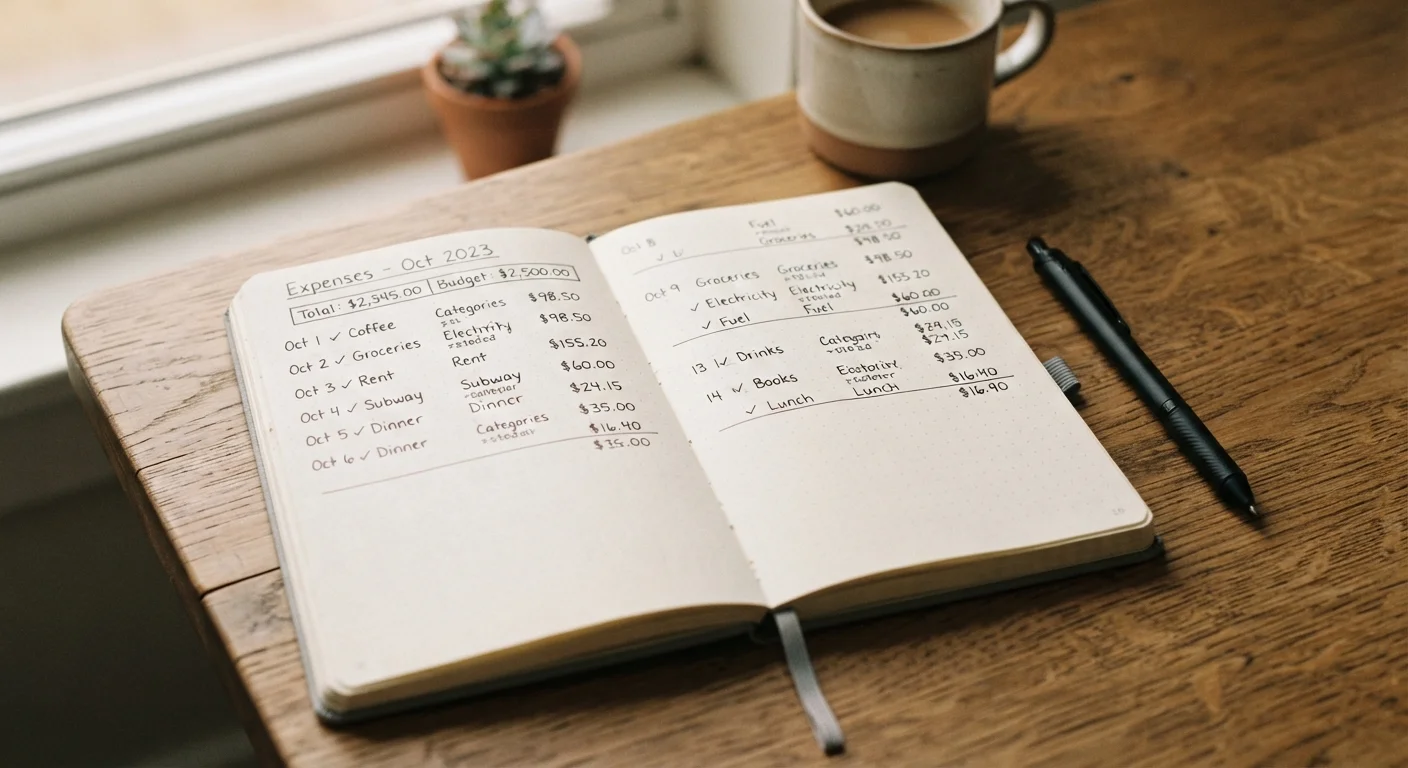 Expenses - Oct 2023
Total: $2,545.00 Budget: $2,500.00
Oct 1 ✓ Coffee Categories $98.50
Oct 2 ✓ Groceries Electrity $98.50
Oct 3 ✓ Rent Rent $155.20
Oct 4 ✓ Subway Subway $60.00
Oct 5 ✓ Dinner Dinner $24.15
Oct 6 ✓ Dinner Categories $35.00
$16.40
$35.00
Oct 8 Fuel $60.00
Groceries
$98.50
Oct 9 Groceries Groceries $98.50
✓ Electricity Electricity $155.20
✓ Fuel Fuel $60.00
$60.00
13 ✓ Drinks $24.15
$24.15
14 ✓ Books $35.00
✓ Lunch Lunch $16.40
$16.90